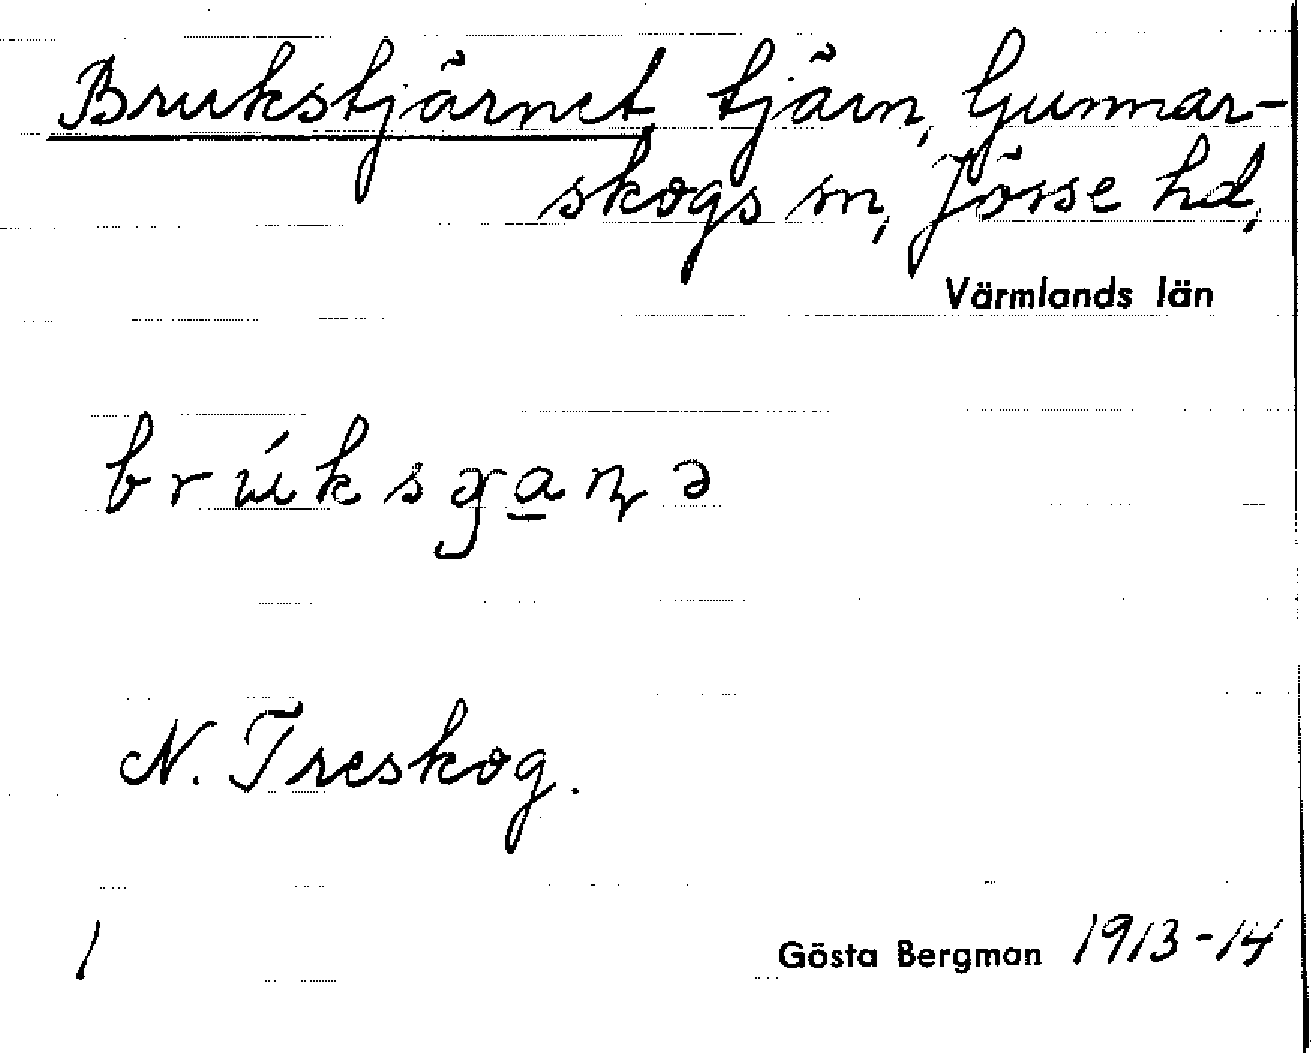 Brukstjärnet tjärn, Gunnar-
skogs sn, Jösse hd,
Värmlands län
brúksɡa̲ɳə
N. Treskog.
1
Gösta Bergman 1913-14